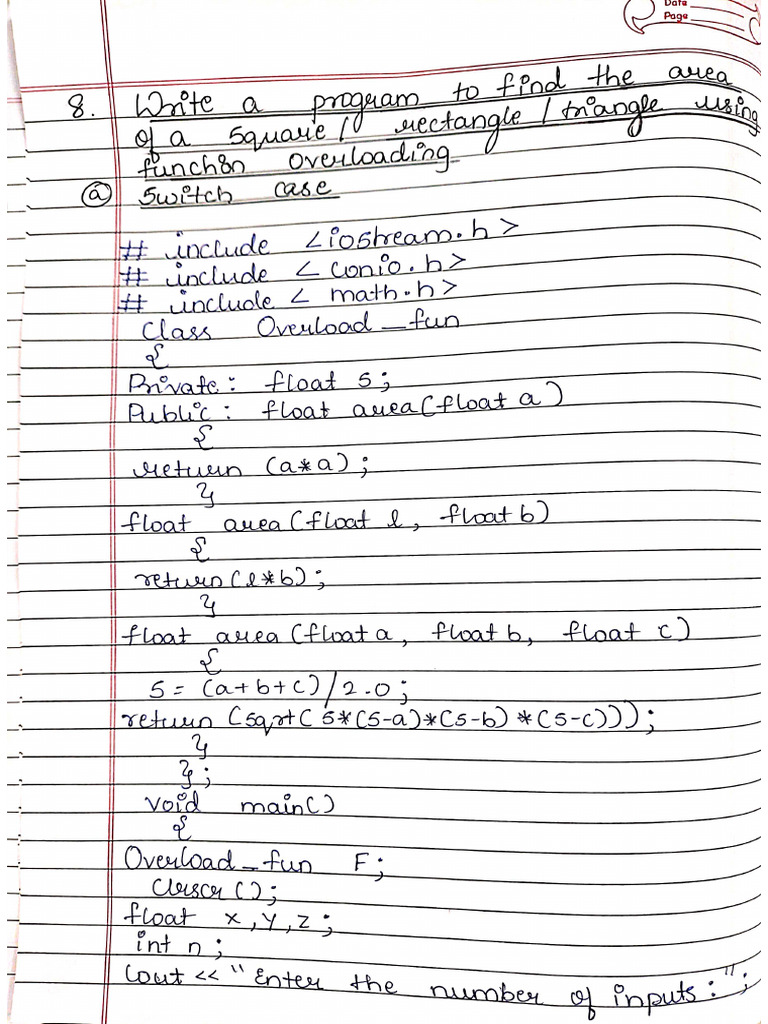 Date
Page
8. Write a program to find the area
of a square / rectangle / triangle using
function overloading
(a) Switch case
# include <iostream.h>
# include < conio.h>
# include < math.h>
Class Overload_fun
{
Private: float s;
Public: float area(float a)
{
return (a*a);
}
float area(float l, float b)
{
return(l*b);
}
float area(float a, float b, float c)
{
s = (a+b+c)/2.0;
return (sqrt(s*(s-a)*(s-b)*(s-c)));
}
};
void main()
{
Overload_fun F;
Clrscr();
float x,y,z;
int n;
Cout << "Enter the number of inputs:";